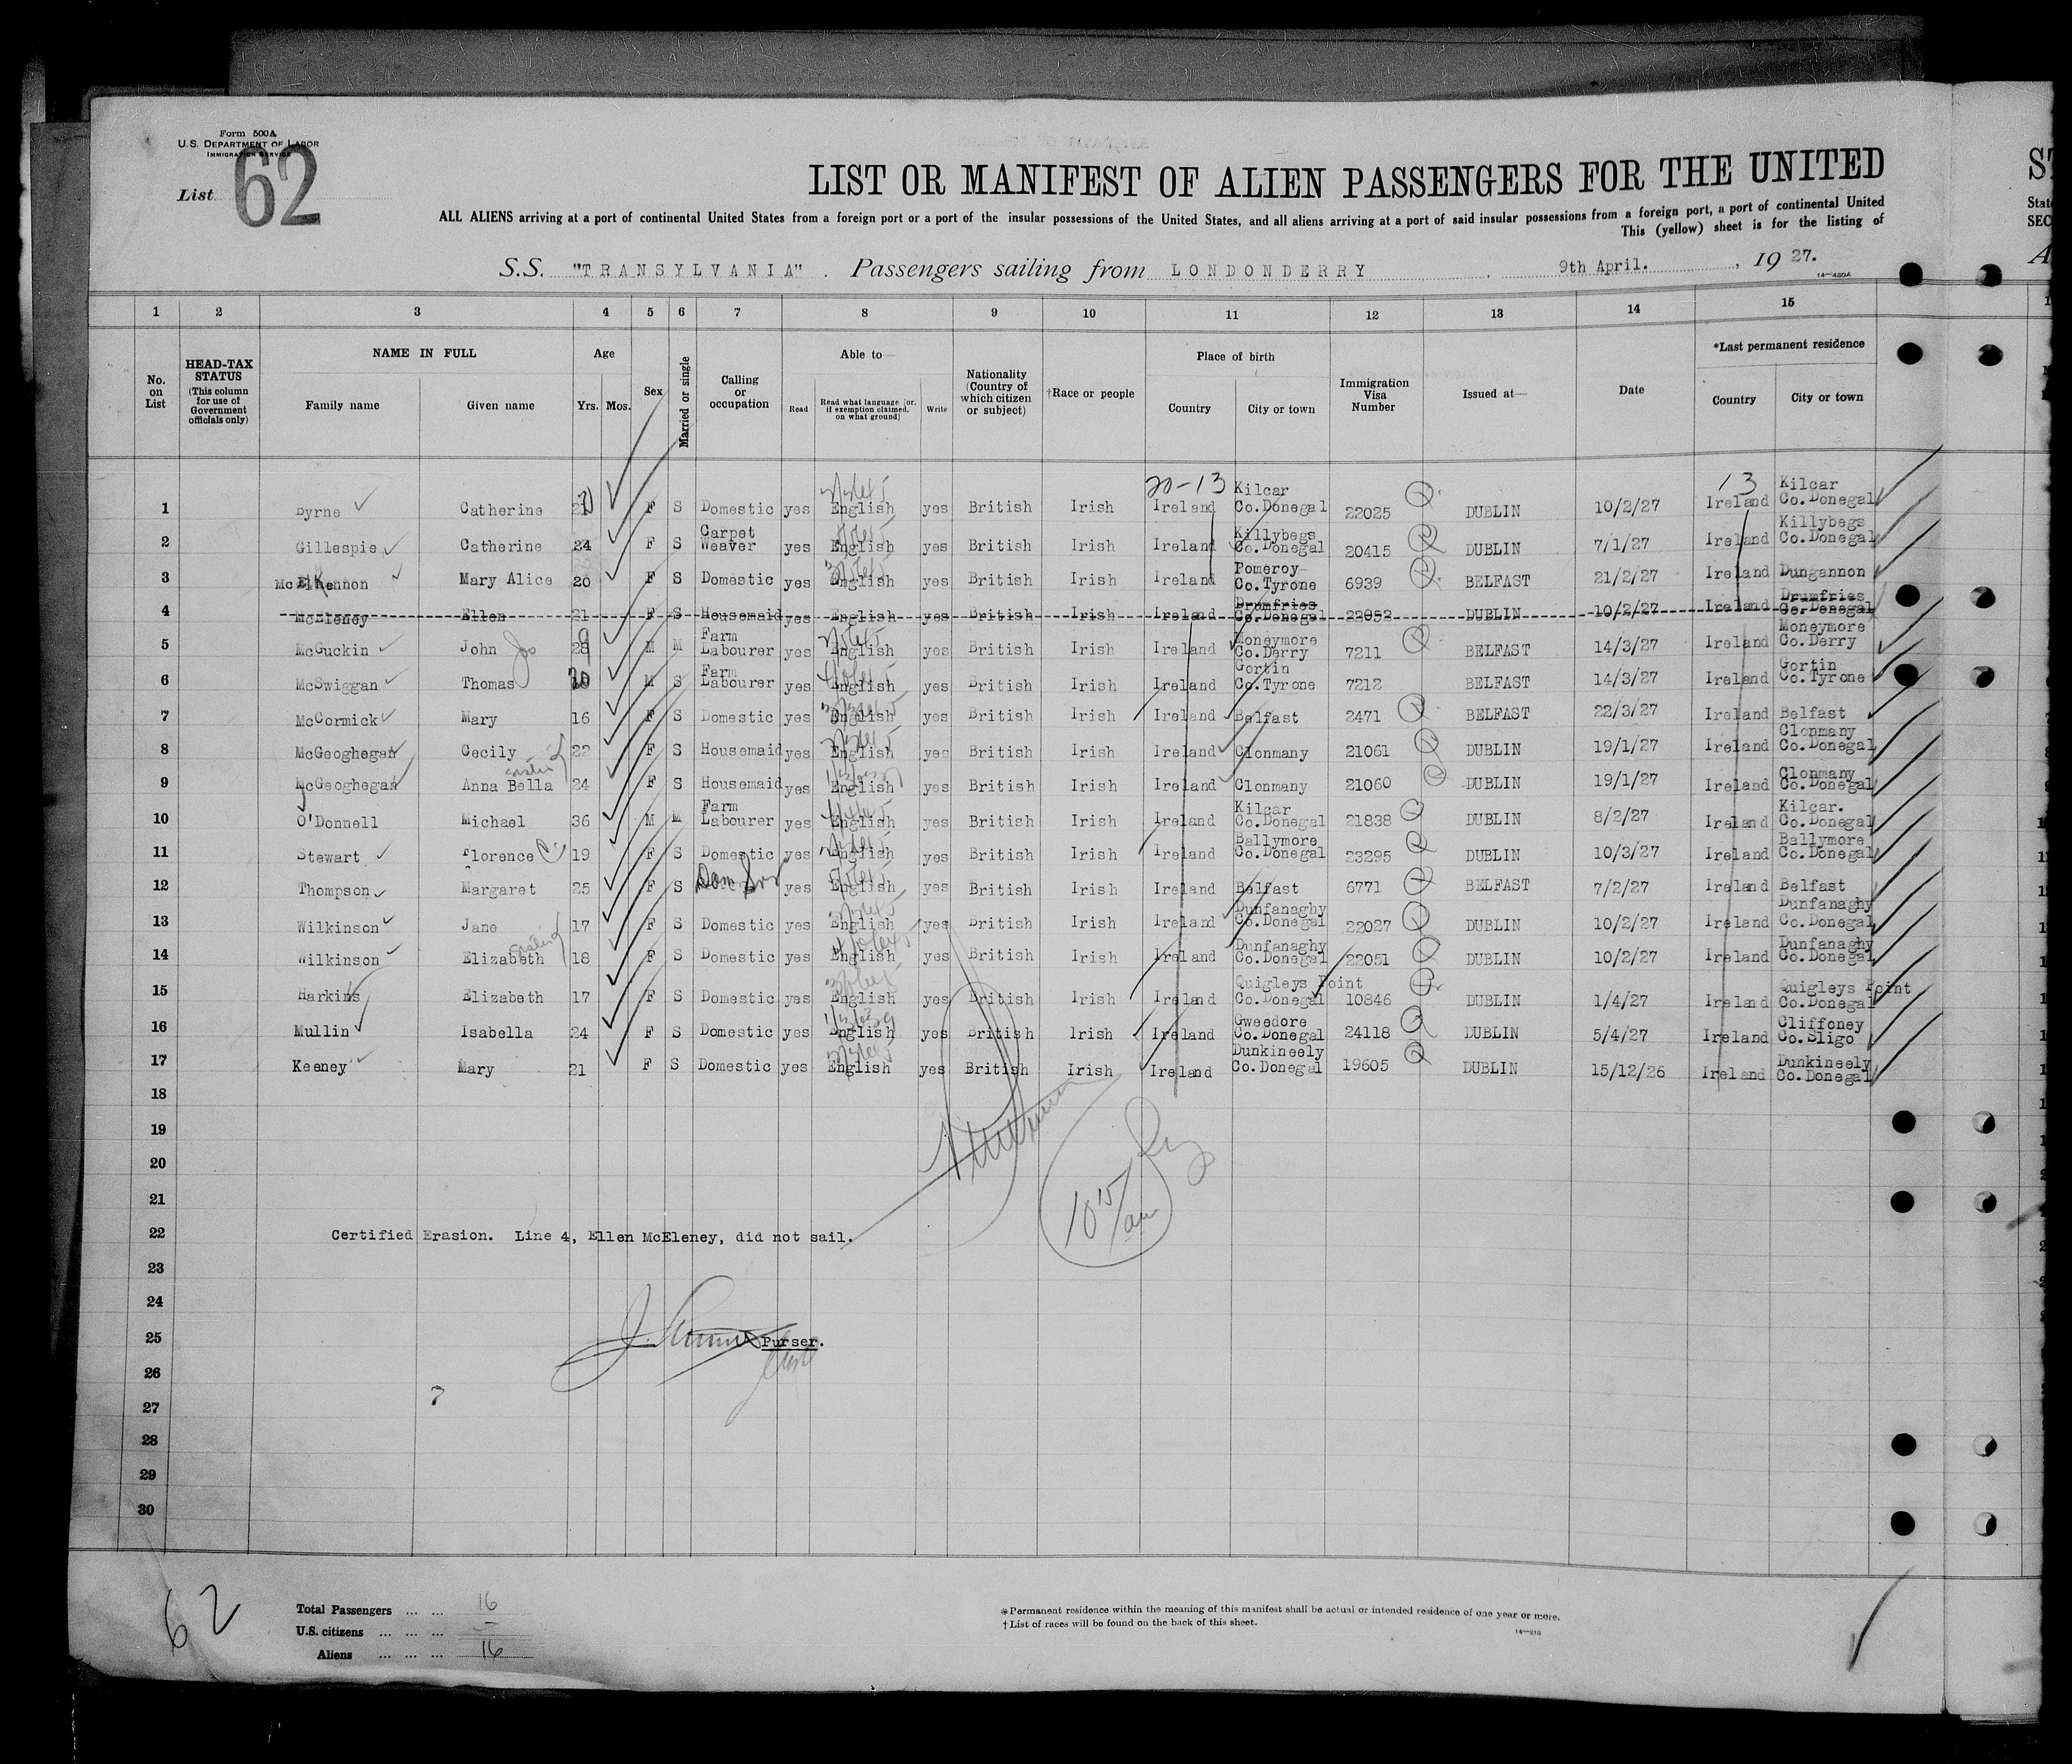 Form 500A
U.S. DEPARTMENT OF LABOR
IMMIGRATION SERVICE
List 62
LIST OR MANIFEST OF ALIEN PASSENGERS FOR THE UNITED
ALL ALIENS arriving at a port of continental United States from a foreign port or a port of the insular possessions of the United States, and all aliens arriving at a port of said insular possessions from a foreign port, a port of continental United
This (yellow) sheet is for the listing of
S.S. "TRANSYLVANIA". Passengers sailing from LONDONDERRY, 9th April., 1927.
14—430A
1 2 3 4 5 6 7 8 9 10 11 12 13 14 15
No. on List
HEAD-TAX STATUS (This column for use of Government officials only)
NAME IN FULL Family name Given name
Age Yrs. Mos.
Sex
Married or single
Calling or occupation
Able to— Read Read what language (or, if exemption claimed, on what ground) Write
Nationality (Country of which citizen or subject)
†Race or people
Place of birth Country City or town
Immigration Visa Number
Issued at—
Date
*Last permanent residence Country City or town
20-13 13
1 Byrne Catherine 21 F S Domestic yes English yes British Irish Ireland Kilcar Co.Donegal 22025 DUBLIN 10/2/27 Ireland Kilcar Co.Donegal
2 Gillespie Catherine 24 F S Carpet Weaver yes English yes British Irish Ireland Killybegs Co.Donegal 20415 DUBLIN 7/1/27 Ireland Killybegs Co.Donegal
3 Mary Alice 20 F S Domestic yes English yes British Irish Ireland Pomeroy Co.Tyrone 6939 BELFAST 21/2/27 Ireland Dungannon
4 McEleney Ellen 21 F S Housemaid yes English yes British Irish Ireland Drumfries Co.Donegal 22052 DUBLIN 10/2/27 Ireland Drumfries Co.Donegal
5 McGuckin John 28 M M Farm Labourer yes English yes British Irish Ireland Moneymore Co.Derry 7211 BELFAST 14/3/27 Ireland Moneymore Co.Derry
6 McSwiggan Thomas 20 M S Farm Labourer yes English yes British Irish Ireland Gortin Co.Tyrone 7212 BELFAST 14/3/27 Ireland Gortin Co.Tyrone
7 McCormick Mary 16 F S Domestic yes English yes British Irish Ireland Belfast 2471 BELFAST 22/3/27 Ireland Belfast
8 McGeoghegan Cecily 22 F S Housemaid yes English yes British Irish Ireland Clonmany 21061 DUBLIN 19/1/27 Ireland Clonmany Co.Donegal
sister
9 McGeoghegan Anna Bella 24 F S Housemaid yes English yes British Irish Ireland Clonmany 21060 DUBLIN 19/1/27 Ireland Clonmany Co.Donegal
10 O'Donnell Michael 36 M M Farm Labourer yes English yes British Irish Ireland Kilcar Co.Donegal 21838 DUBLIN 8/2/27 Ireland Kilcar. Co.Donegal
11 Stewart Florence C. 19 F S Domestic yes English yes British Irish Ireland Ballymore Co.Donegal 23295 DUBLIN 10/3/27 Ireland Ballymore Co.Donegal
12 Thompson Margaret 25 F S yes English yes British Irish Ireland Belfast 6771 BELFAST 7/2/27 Ireland Belfast
13 Wilkinson Jane 17 F S Domestic yes English yes British Irish Ireland Dunfanaghy Co.Donegal 22027 DUBLIN 10/2/27 Ireland Dunfanaghy Co.Donegal
sister
14 Wilkinson Elizabeth 18 F S Domestic yes English yes British Irish Ireland Dunfanaghy Co.Donegal 22051 DUBLIN 10/2/27 Ireland Dunfanaghy Co.Donegal
15 Harkins Elizabeth 17 F S Domestic yes English yes British Irish Ireland Quigleys Point Co.Donegal 10846 DUBLIN 1/4/27 Ireland Quigleys Point Co.Donegal
16 Mullin Isabella 24 F S Domestic yes English yes British Irish Ireland Gweedore Co.Donegal 24118 DUBLIN 5/4/27 Ireland Cliffoney Co.Sligo
17 Keeney Mary 21 F S Domestic yes English yes British Irish Ireland Dunkineely Co.Donegal 19605 DUBLIN 15/12/26 Ireland Dunkineely Co.Donegal
18
19
20
21
10 15/am
22 Certified Erasion. Line 4, Ellen McEleney, did not sail.
23
24
25 Purser.
26
7
27
28
29
30
62
Total Passengers ... ... 16
U.S. citizens ... ... ... —
Aliens ... ... ... 16
*Permanent residence within the meaning of this manifest shall be actual or intended residence of one year or more.
†List of races will be found on the back of this sheet.
14—218